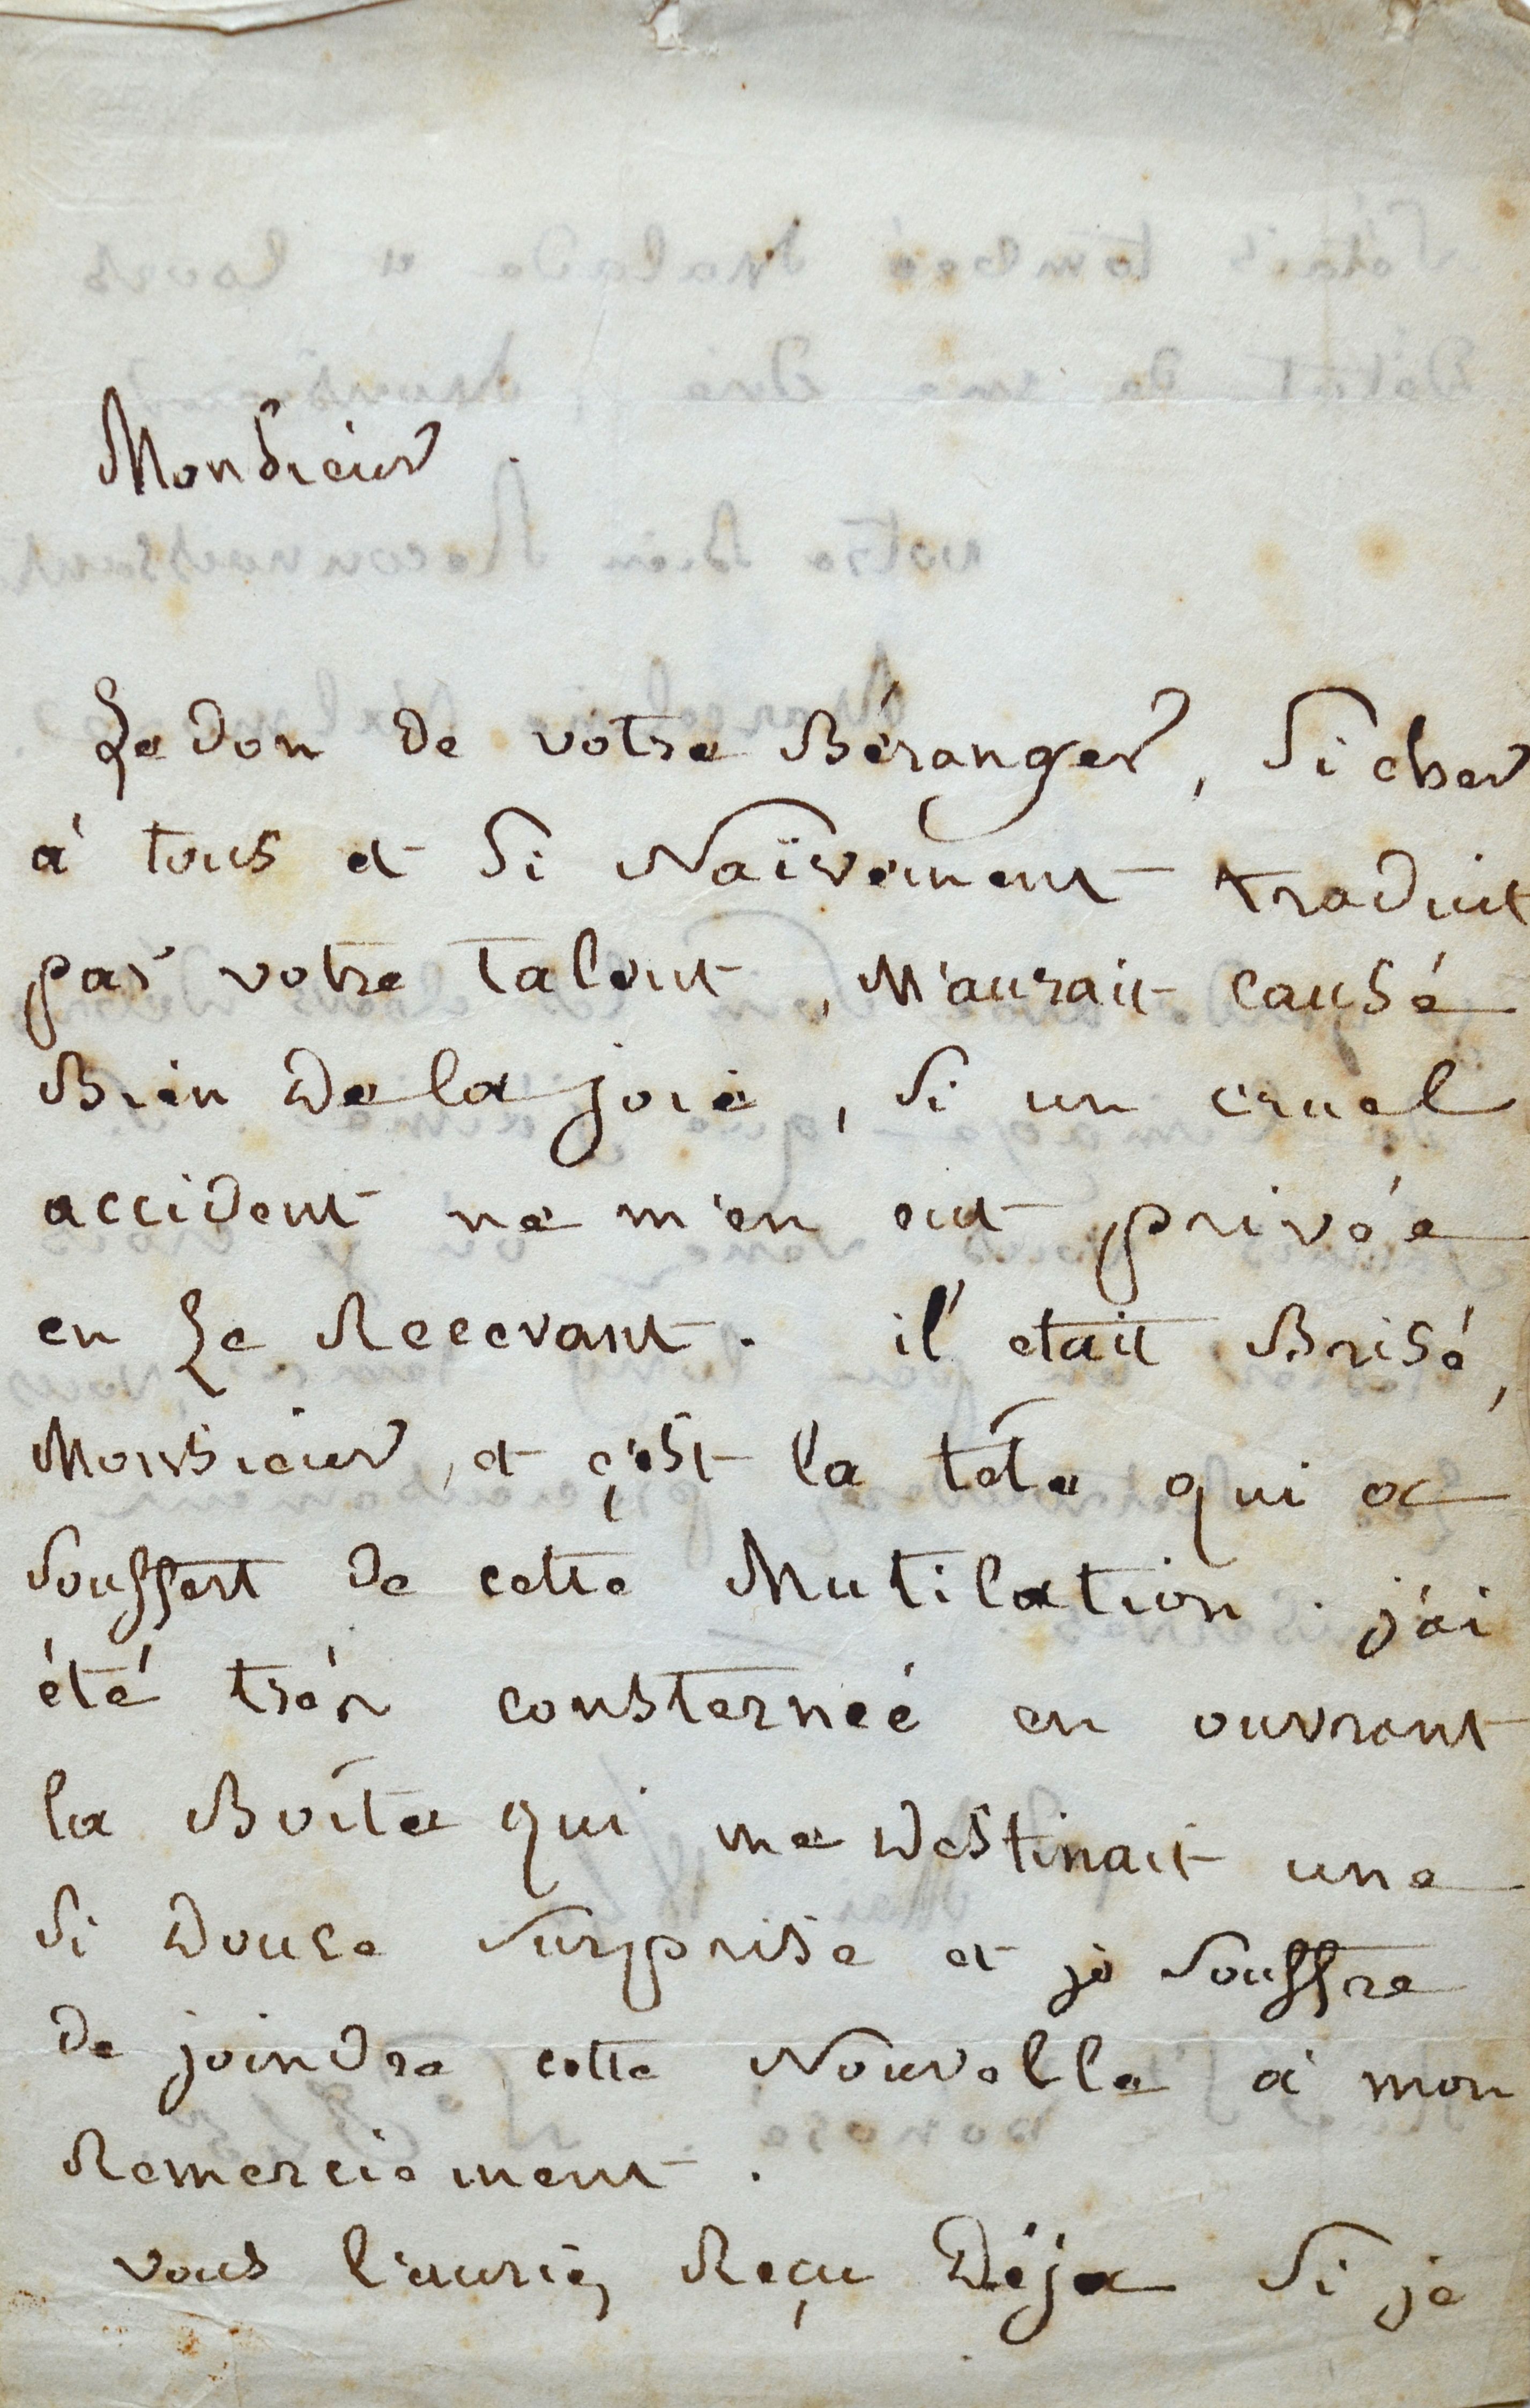 Monsieur.
Le don de votre Béranger, si cher
à tous et si Naïvement traduit
par votre talent, M'aurait causé
Bien de la joie, si un cruel
accident ne m'en eut privée
en Le Recevant. il était Brisé,
Monsieur, et c'est la tête qui a
souffert de cette Mutilation. j'ai
été très consternéé en ouvrant
la Boîte qui me destinait une
si douce surprise et je souffre
de joindre cette Nouvelle à mon
Remerciement.
vous l'auriez Reçu Déja si je